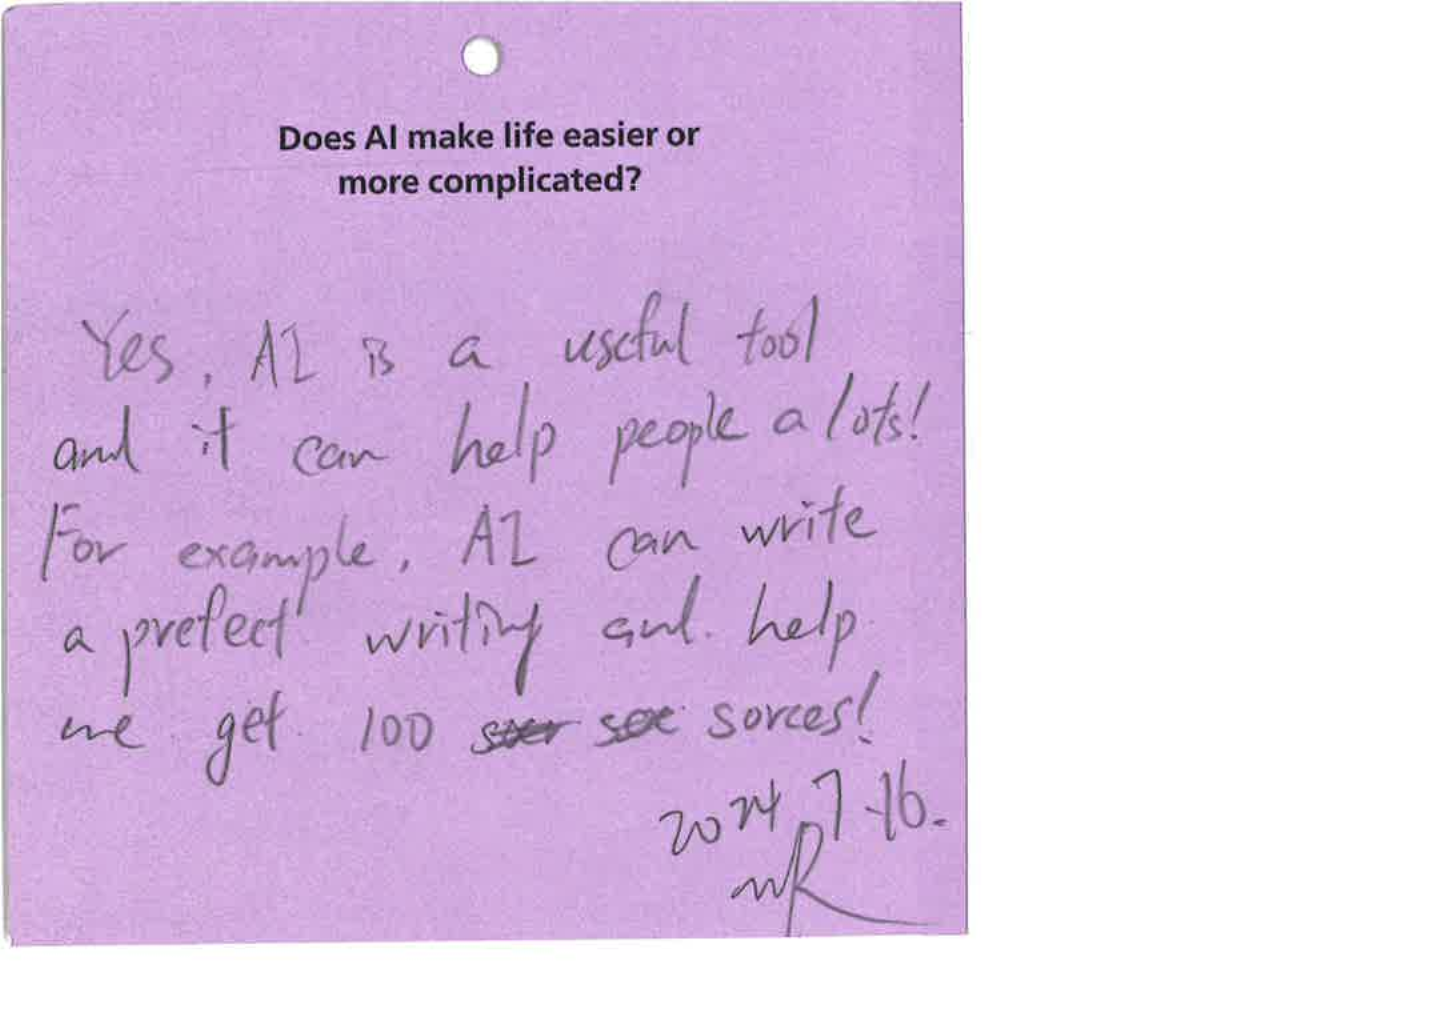 Does AI make life easier or
more complicated?
Yes, AI is a useful tool
and it can help people a lots!
For example, AI can write
a prefect writing and help
me get 100 sorces!
2024.7.16.